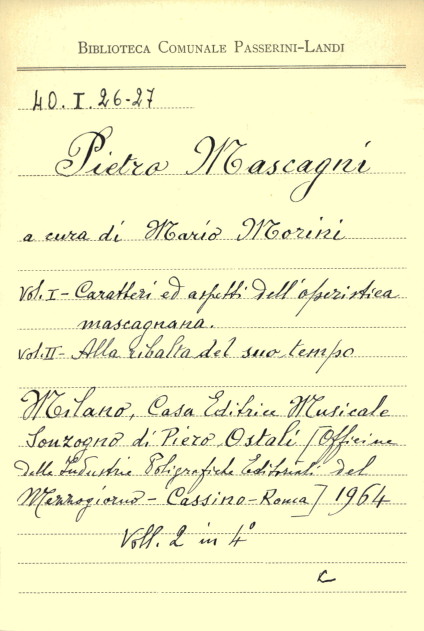 BIBLIOTECA COMUNALE PASSERINI-LANDI
40. I. 26-27
Pietro Mascagni
a cura di Mario Morini
Vol. I - Caratteri ed aspetti dell'operistica
mascagnana.
Vol. II - Alla ribalta del suo tempo
Milano, Casa Editrice Musicale
Sonzogno di Piero Ostali [Officine
delle Industrie Poligrafiche Editoriali del
Mezzogiorno - Cassino-Roma] 1964
Voll. 2 in 4°
c